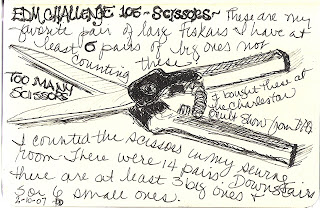 EDM CHALLENGE 105 ~ SCISSORS ~ These are my
favorite pair of large fiskars I have at
least 6 pairs of big ones not
counting these -
TOO MANY
SCISSORS
I bought these at
the Charleston
Quilt Show from
I counted the scissors in my sewing
room There were 14 pairs! Downstairs
there are at least 3 big ones &
5 or 6 small ones.
2-10-07